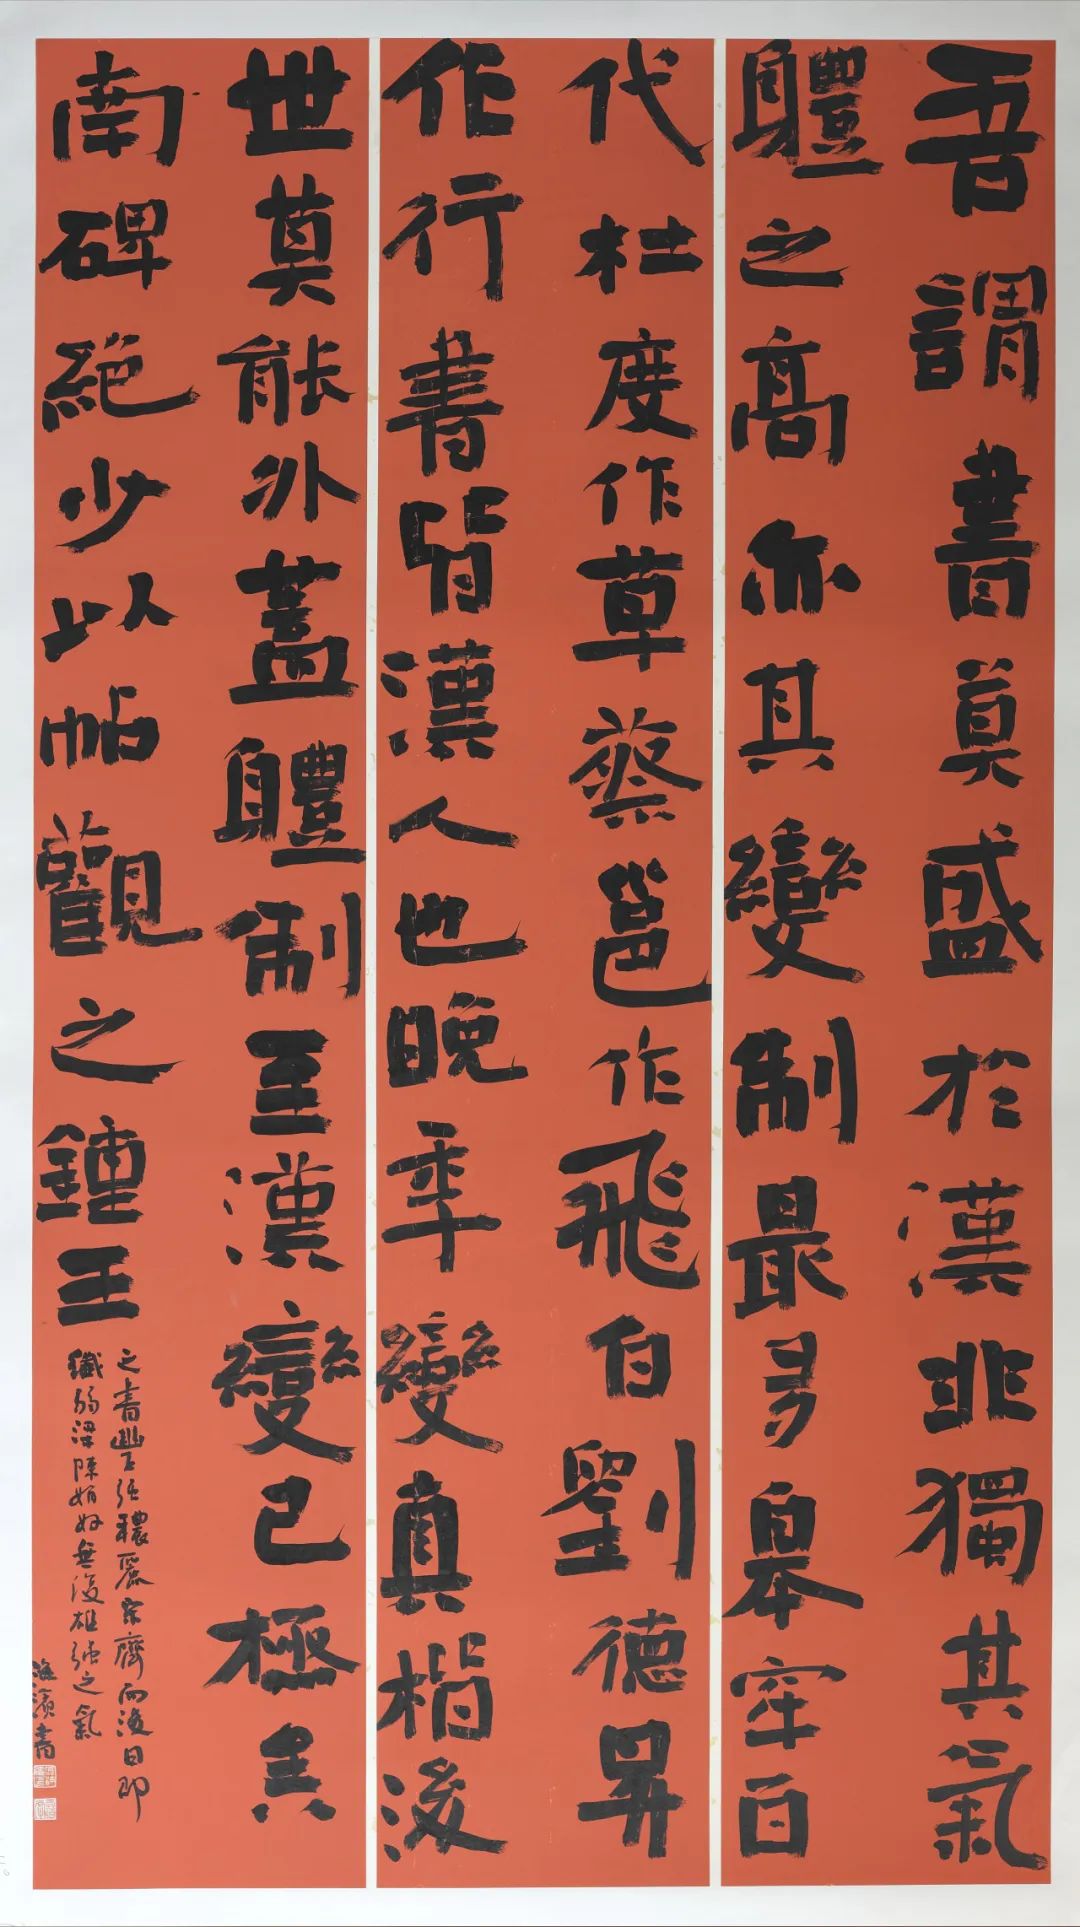 吾謂書莫盛於漢非獨其氣
軆之高亦其變制最多皋牢百
代杜度作草蔡邕作飛白劉德昇
作行書皆漢人也晚季變真楷後
世莫能外蓋軆制至漢變已極矣
南碑絕少以帖觀之鍾王
之書豐強穠麗宋齊而後日即
纖弱梁陳娟好無復雄強之氣
海濱書